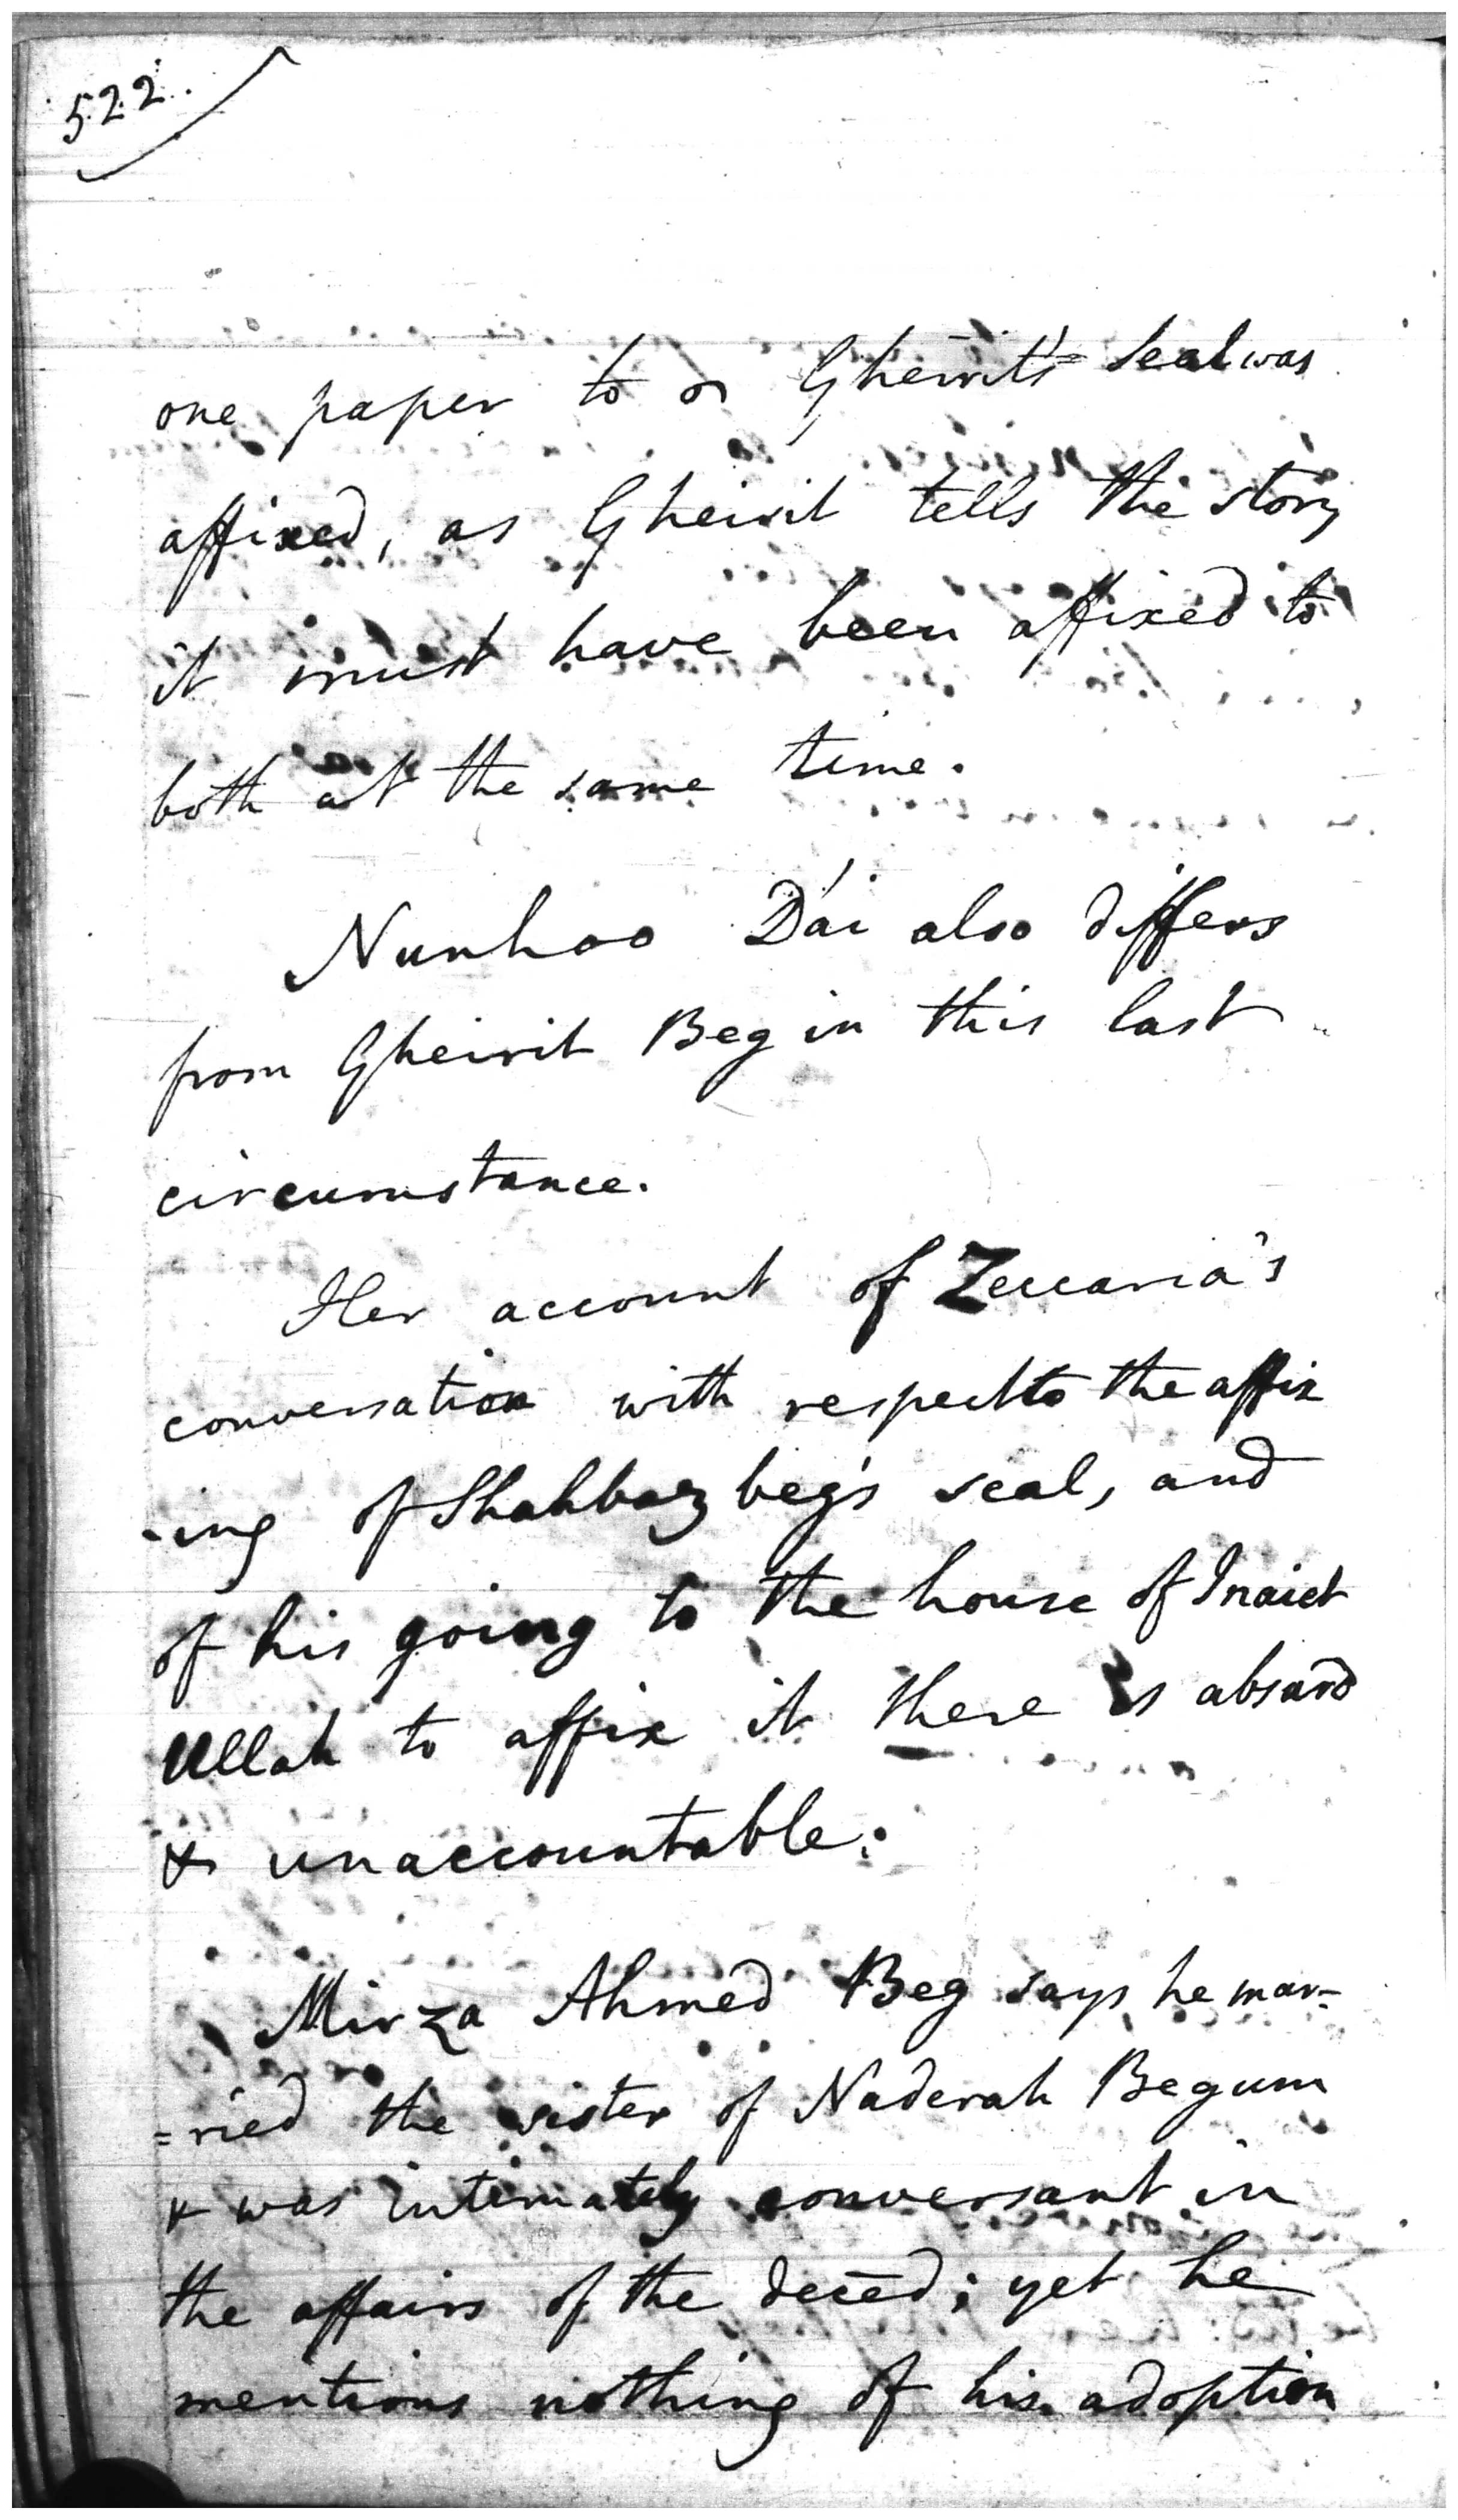 522.
one paper to Gheirit's Seal was
affixed, as Gheirit tells the story
it must have been affixed to
both at the same time.
Nunhoo Dái also differs
from Gheirit Beg in this last
circumstance.
Her account of Zeccaria's
conversation with respect to the affix
-ing of Shahbaz beg's seal, and
of his going to the house of Inaiet
Ullah to affix it there is absurd
& unaccountable.
Mirza Ahmed Beg says he mar=
=ried the sister of Naderah Begum
& was intimately conversant in
the affairs of the deced; yet he
mentions nothing of his adoption